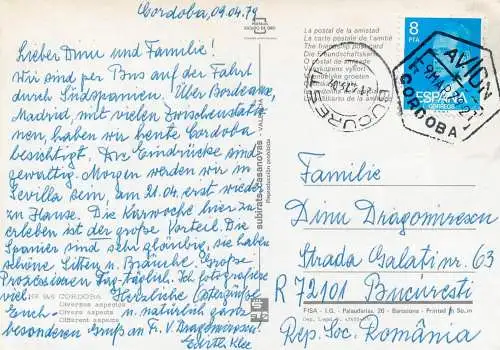 Cordoba, 09.04.79
Lieber Dinu und Familie!
Wir sind per Bus auf der Fahrt
durch Südspanien. Über Bordeaux,
Madrid, mit vielen Zwischenstatio-
nen haben wir heute Cordoba
besichtigt. Die Eindrücke sind
gewaltig. Morgen werden wir in
Sevilla sein, am 21.04. erst wieder
zu Hause. Die Karwoche hier zu
erleben ist der große Vorteil. Die
Spanier sind sehr gläubig, sie haben
schöne Sitten u. Bräuche. Große
Prozessionen tag-täglich. Ich fotografiere
viel. Herzliche Ostergrüße
Euch - u. natürlich ganz
besonderen Gruß an Fr. V. Dragomirescu!
Edith Klee
CORDOBA
Diversos aspectos
Divers aspects
Different aspects
subirats casanovas - VALENCIA
Reproducción prohibida
La postal de la amistad
La carte postale de l'amitié
The friendship postcard
Die Freundschaftskarte
8
PTA
ESPAÑA
CORREOS
AVION
CORDOBA
BUCUREST
Familie
Dinu Dragomirescu
Strada Galați nr. 63
R 72101 Bucuresti
FISA - I.G. - Palaudarias, 26 - Barcelona - Printed in Spain
Rep. Soc. România